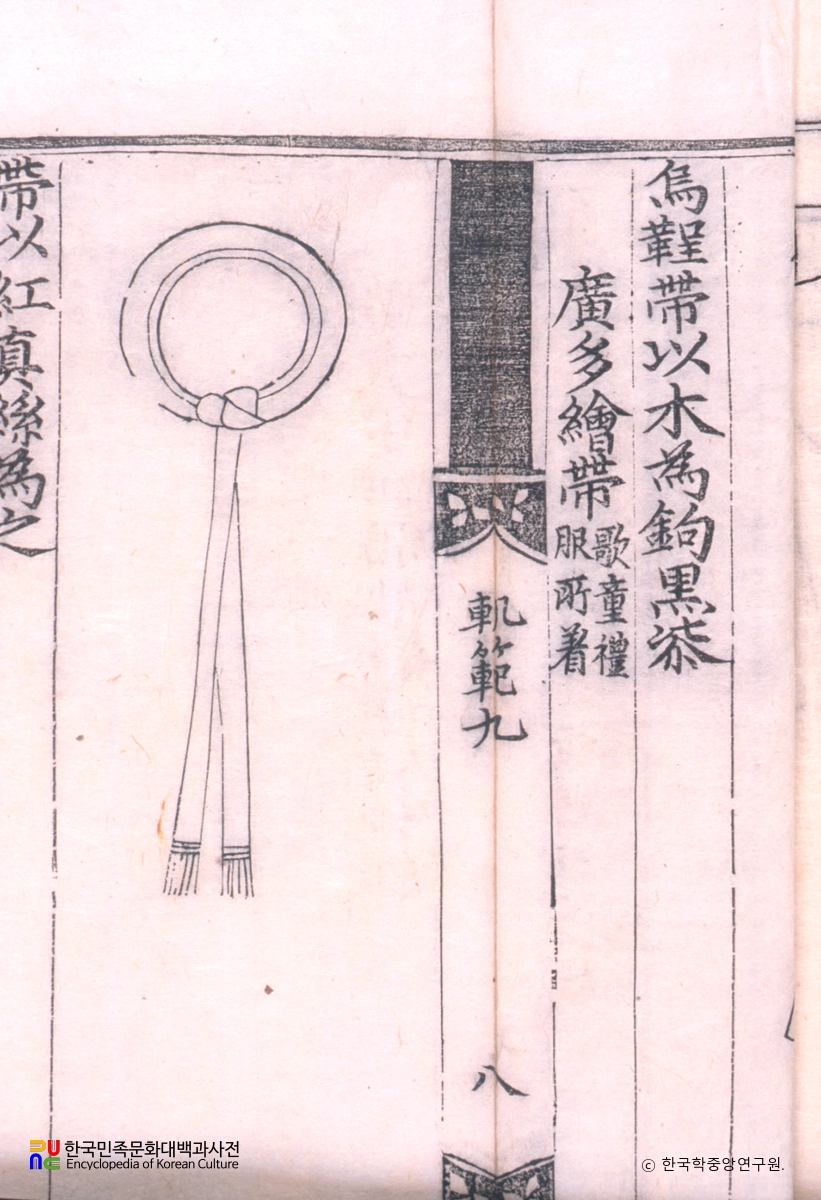 烏鞓帶以木爲鉤黑漆
廣多繪帶 歌童禮
服所着
軌範九
八
帶以紅真絲爲之
한국민족문화대백과사전
Encyclopedia of Korean Culture
ⓒ 한국학중앙연구원.